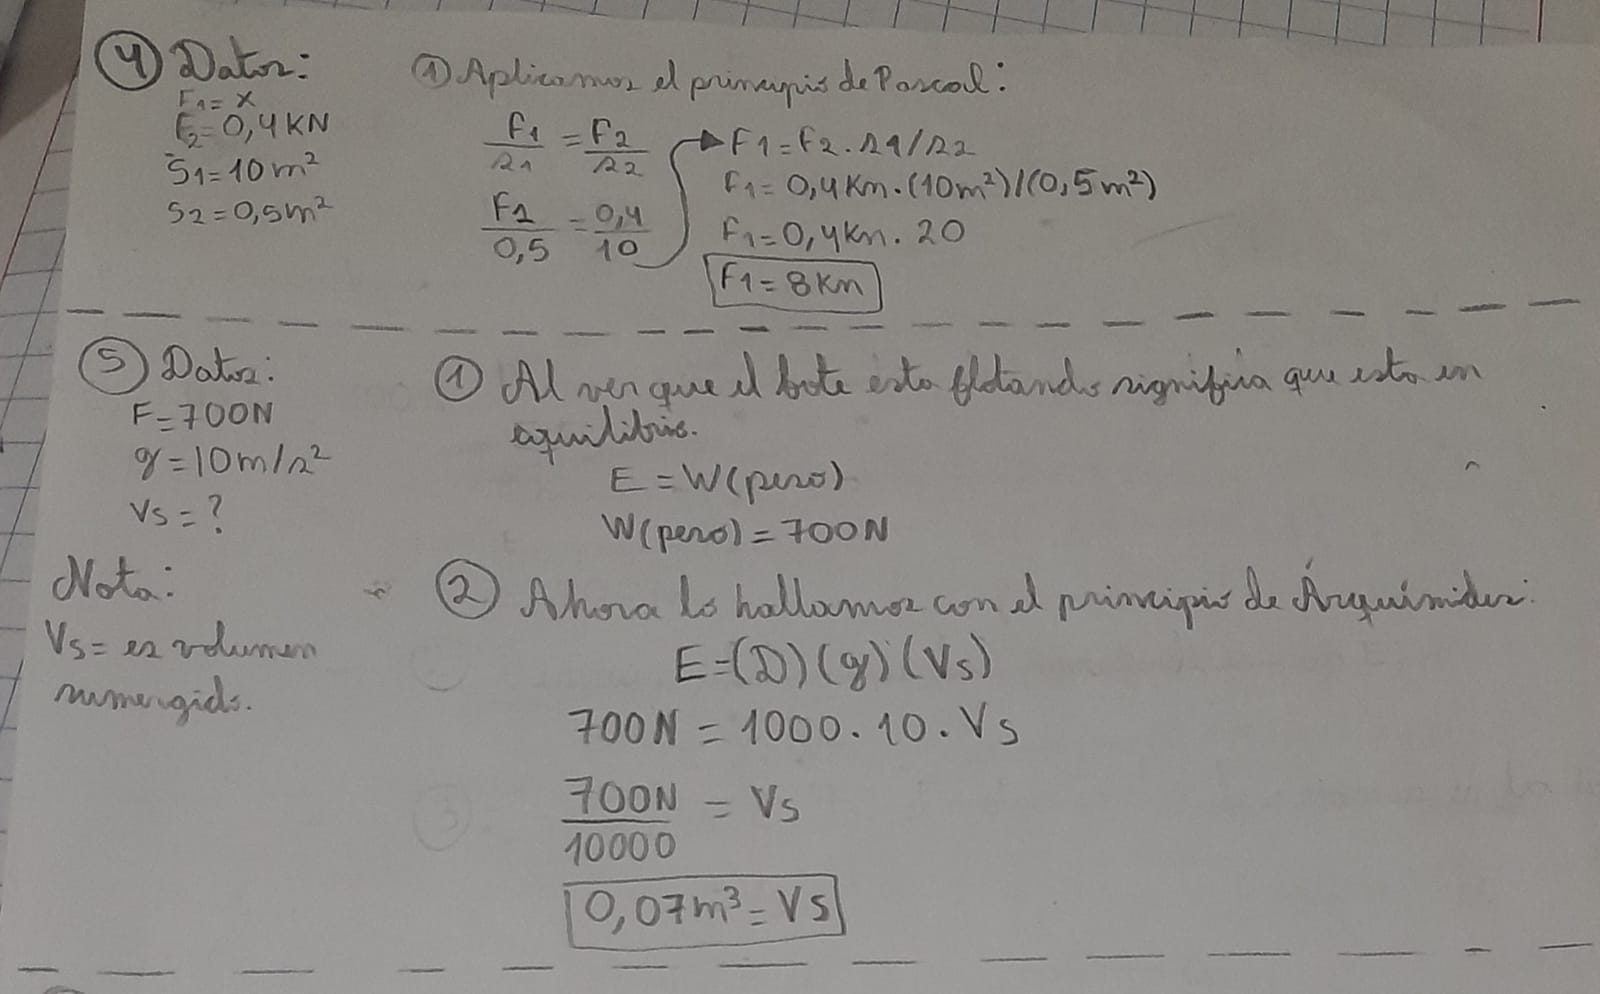 ④ Datos:
F1 = X
F2 = 0,4 KN
S1 = 10 m²
S2 = 0,5 m²
① Aplicamos el principio de Pascal:
F1/s1 = F2/s2
F1/0,5 = 0,4/10
F1 = F2 . s1/s2
F1 = 0,4 Kn . (10m²)/(0,5m²)
F1 = 0,4 Kn . 20
F1 = 8 Kn
⑤ Datos:
F = 700N
g = 10 m/s²
Vs = ?
Nota:
Vs = es volumen
sumergido.
① Al ver que el bote esta flotando significa que esta en
equilibrio.
E = W(peso)
W(peso) = 700N
② Ahora lo hallamos con el principio de Árquimides:
E = (D) (g) (Vs)
700N = 1000 . 10 . Vs
700N/10000 = Vs
0,07m³ = Vs